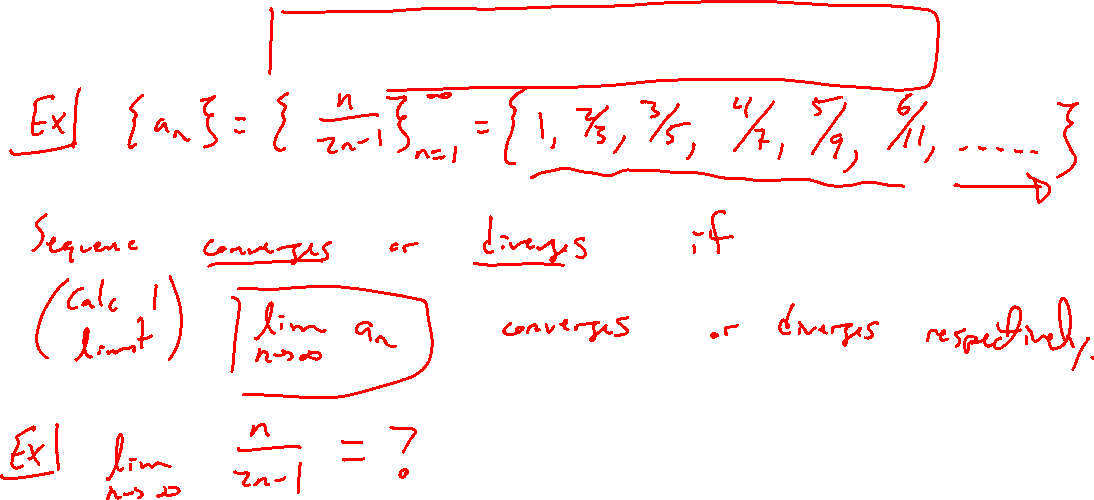 Ex| {aₙ} = { n/(2n-1) }ₙ₌₁^∞ = { 1, 2/3, 3/5, 4/7, 5/9, 6/11, ...... }
Sequence converges or diverges if
(Calc 1 limit) lim n→∞ aₙ converges or diverges respectively.
Ex| lim n→∞ n/(2n-1) = ?